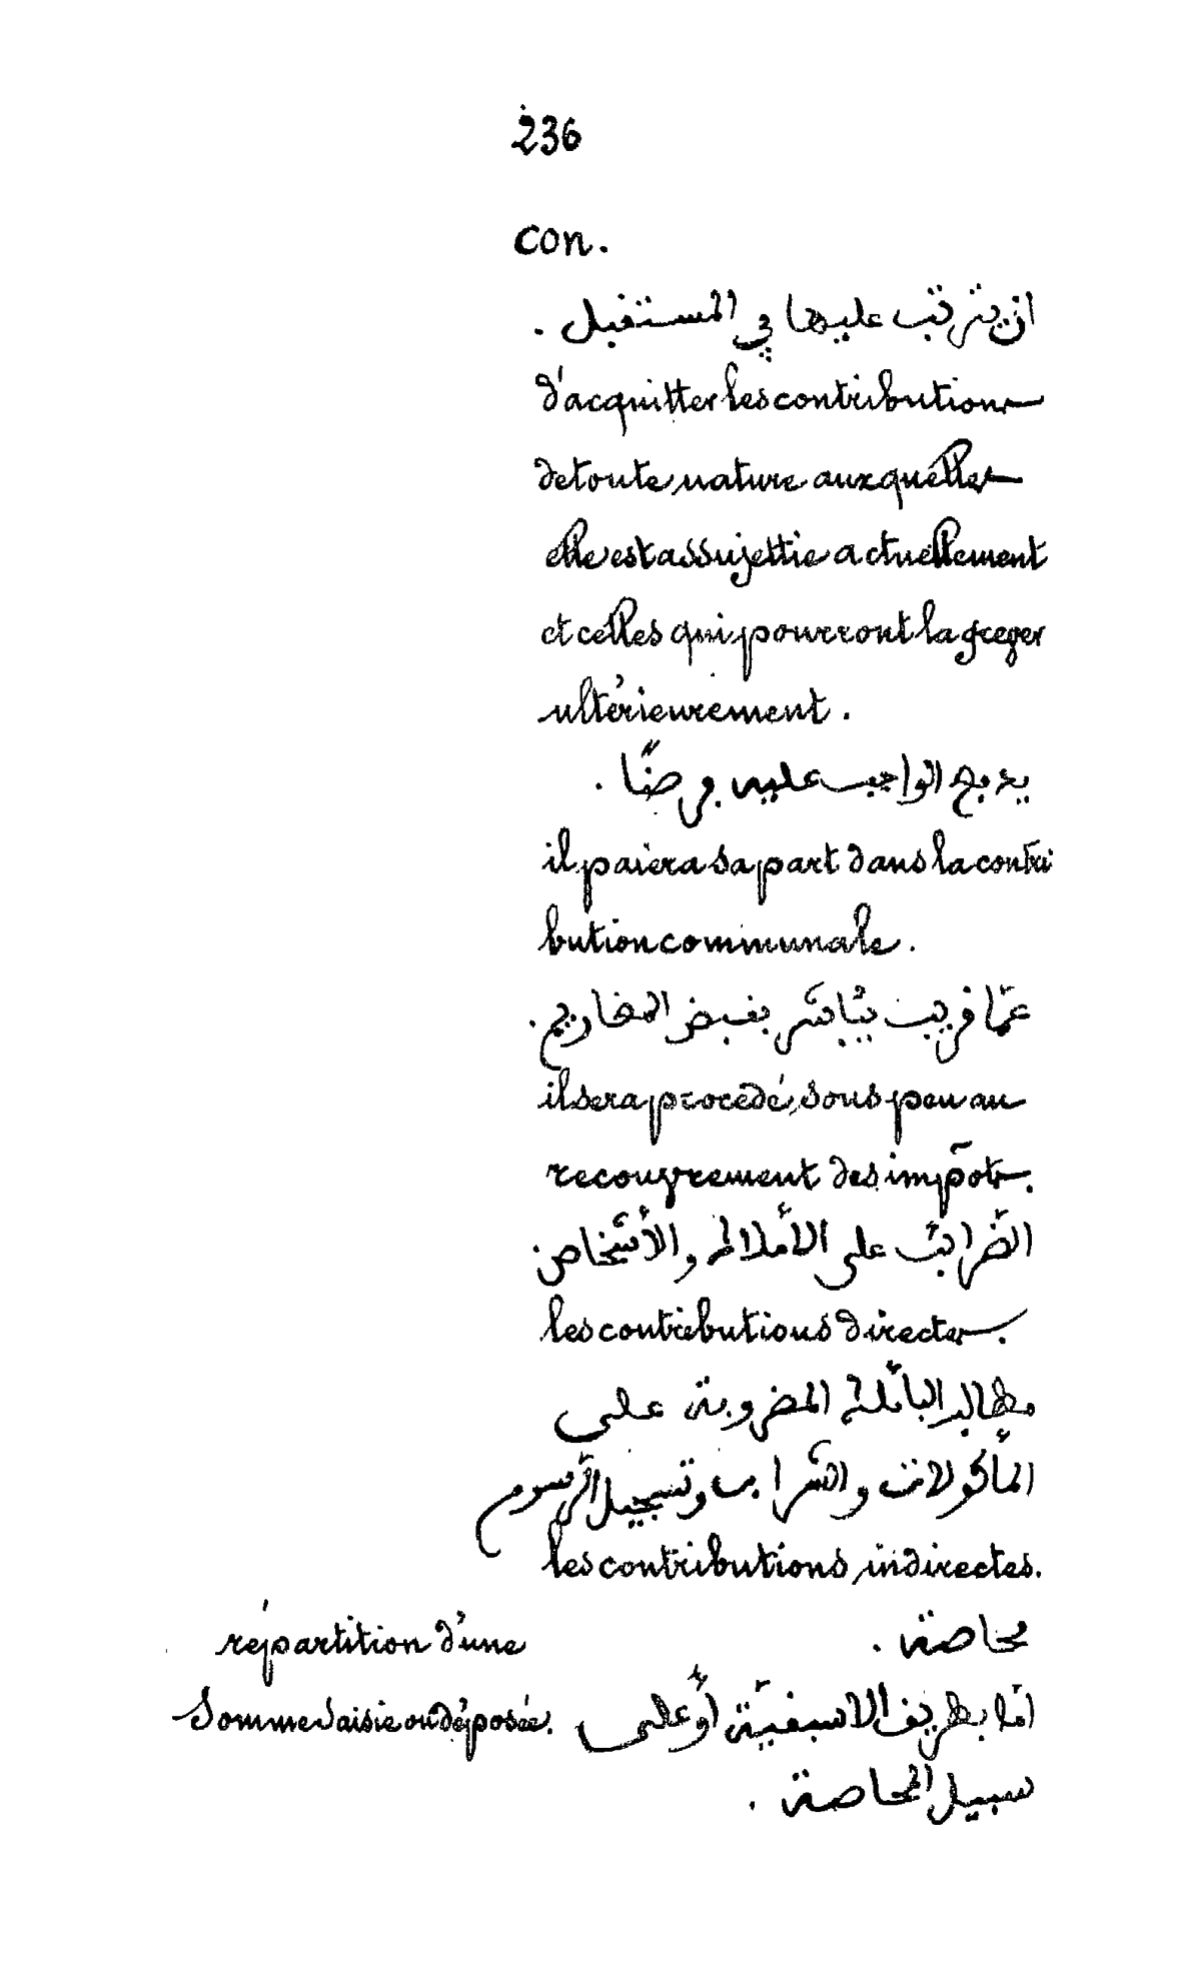 236
con.
ان يترتب عليها في المستقبل .
d'acquitter les contributions
de toute nature auxquelles
elle est assujettie actuellement
et celles qui pourront la grever
ultérieurement .
يدفع الواجب عليه فرضًا .
il paiera sa part dans la contri
bution communale .
عمّا قريب يُباشَر بقبض المخاريج .
il sera procédé, sous peu au
recouvrement des impôts .
الضّرائب على الأملاك والأشخاص .
les contributions directes .
مطالب البائلة المضروبة على
المأكولات والشراب وتسجيل الرسوم
les contributions indirectes .
محاصة .
répartition d'une
somme saisie ou déposée .
امّا بطريق الاسبقيّة أو على
سبيل المحاصة .